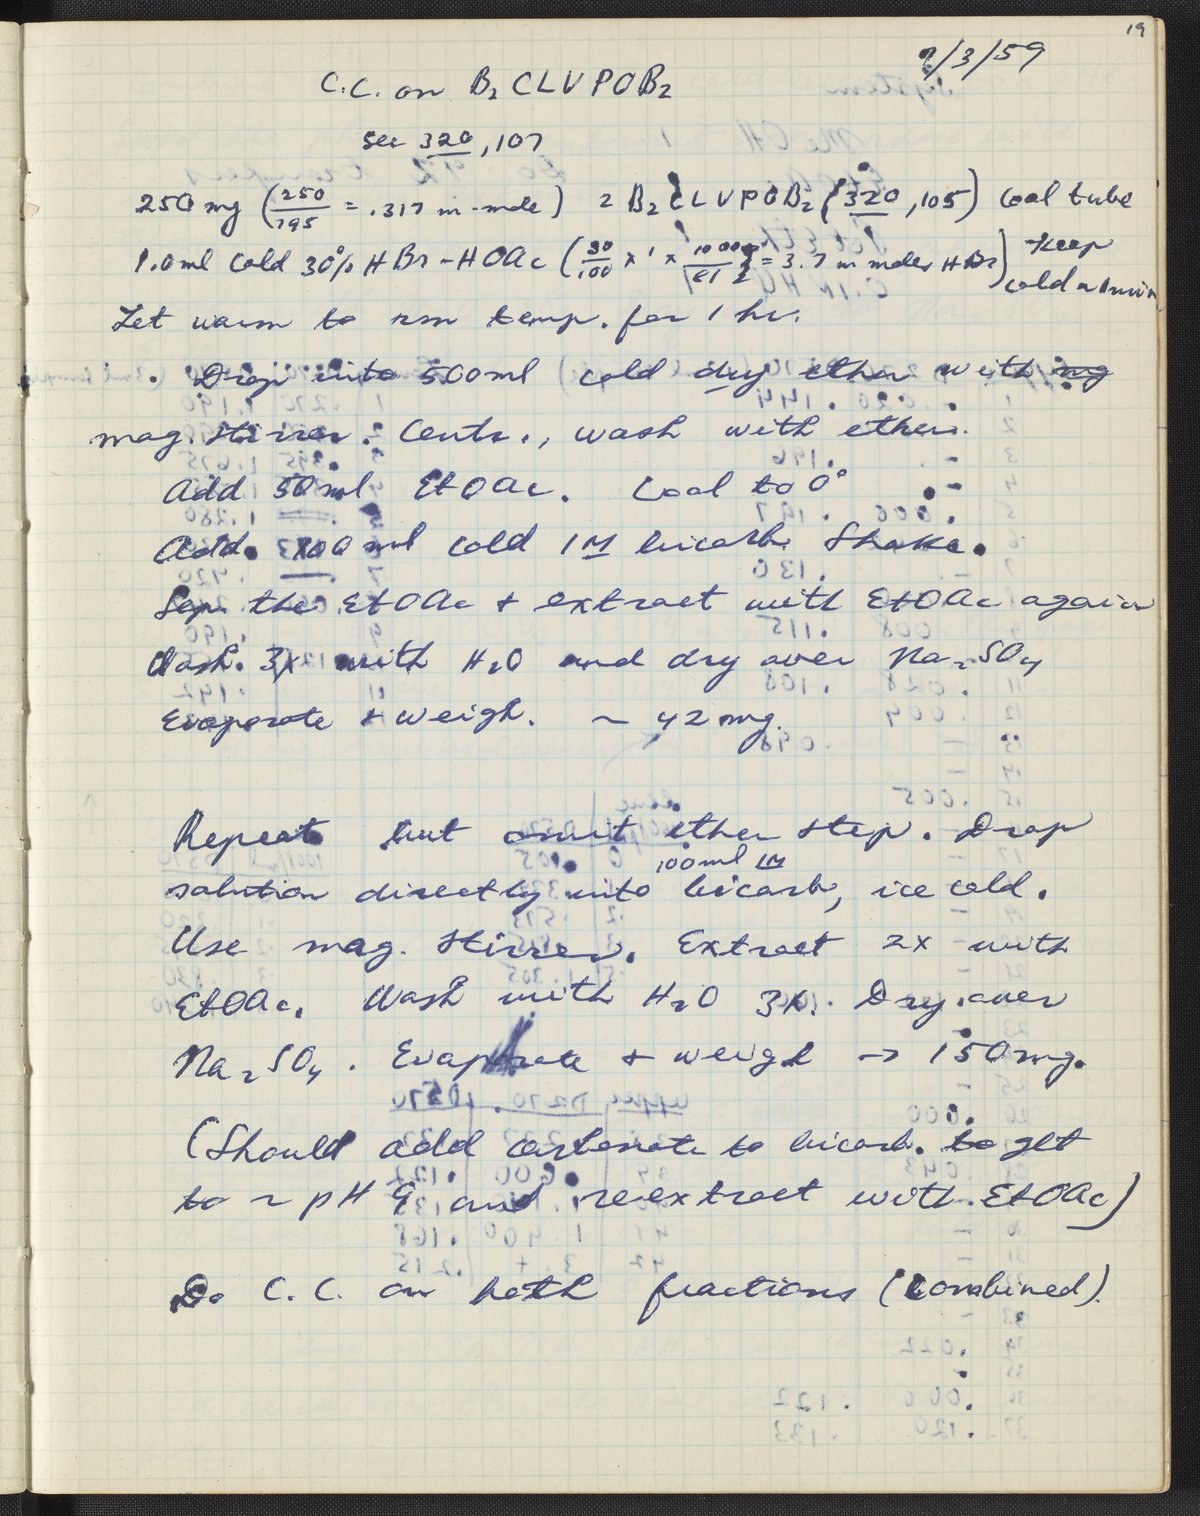 19
2/3/59
C.C. on B₂CLVPOB₂
See 320, 107
250 mg (250/795 = .317 m-mole) B₂CLVPOB₂ (320, 105) Cool tube
1.0 ml cold 30% HBr-HOAc (30/100 x 1 x 1000/81 = 3.7 m moles HBr) Keep
cold
Let warm to rm temp. for 1 hr.
Drop into 500 ml cold dry ether with mg
mag. stirrer. Centr., wash with ether.
Add 50 ml EtOAc. Cool to 0°
Add 100 ml cold 1M bicarb. Shake.
Sep. the EtOAc + extract with EtOAc again
Wash 3x with H₂O and dry over Na₂SO₄
Evaporate + weigh. ~ 42 mg.
Repeat but omit ether step. Drop
100 ml 1M
solution directly into bicarb, ice cold.
Use mag. stirrer. Extract 2x with
EtOAc. Wash with H₂O 3x. Dry over
Na₂SO₄. Evaporate + weigh → 150 mg.
(Should add carbonate to bicarb. to get
to ~ pH 9 and reextract with EtOAc)
Do C.C. on both fractions (combined).